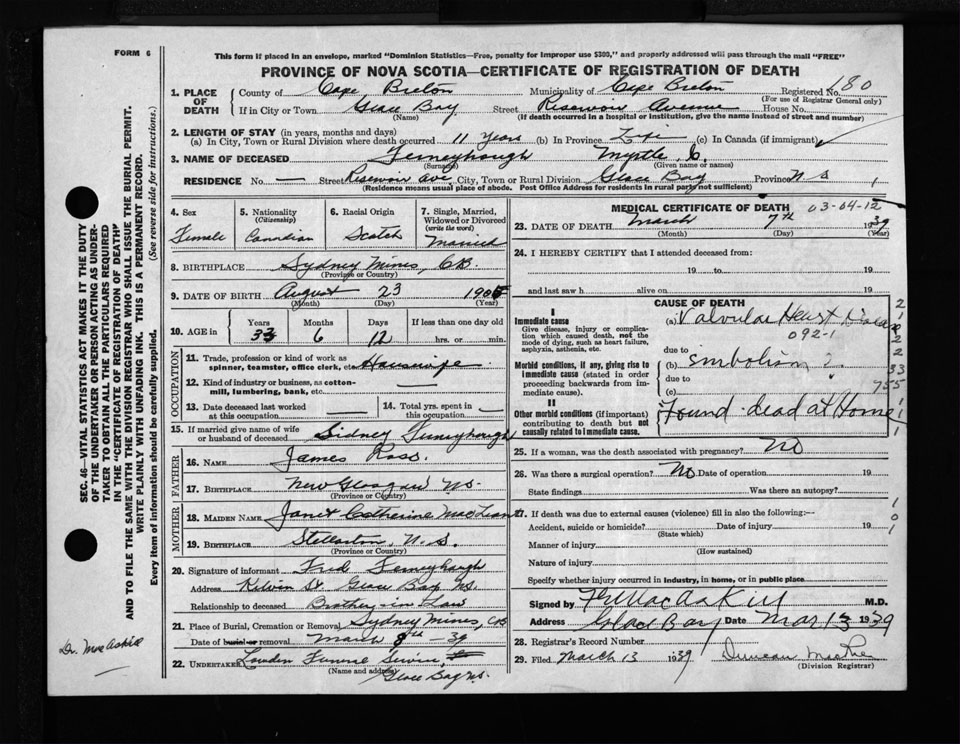 FORM 6
This form if placed in an envelope, marked "Dominion Statistics—Free, penalty for improper use $300," and properly addressed will pass through the mail "FREE"
PROVINCE OF NOVA SCOTIA—CERTIFICATE OF REGISTRATION OF DEATH
1. PLACE OF DEATH County of Cape Breton Municipality of Cape Breton Registered No. 80
(For use of Registrar General only)
If in City or Town Glace Bay Street Reservoir Avenue House No.
(Name) (If death occurred in a hospital or institution, give the name instead of street and number)
2. LENGTH OF STAY (in years, months and days)
(a) In City, Town or Rural Division where death occurred 11 Years (b) In Province Life (c) In Canada (if immigrant)
3. NAME OF DECEASED Ferneyhough Myrtle C.
(Surname) (Given name or names)
RESIDENCE No. — Street Reservoir Ave City, Town or Rural Division Glace Bay Province N S
(Residence means usual place of abode. Post Office Address for residents in rural parts not sufficient)
4. Sex Female
5. Nationality (Citizenship) Canadian
6. Racial Origin Scotch
7. Single, Married, Widowed or Divorced (write the word) Married
8. BIRTHPLACE Sydney Mines, CB.
(Province or Country)
9. DATE OF BIRTH August 23 1905
(Month) (Day) (Year)
10. AGE in Years Months Days If less than one day old
33 6 12 hrs. or min.
OCCUPATION
11. Trade, profession or kind of work as spinner, teamster, office clerk, etc. Housewife
12. Kind of industry or business, as cotton-mill, lumbering, bank, etc. —
13. Date deceased last worked at this occupation —
14. Total yrs. spent in this occupation —
15. If married give name of wife or husband of deceased Sidney Ferneyhough
FATHER
16. NAME James Ross.
17. BIRTHPLACE New Glasgow N.S.
(Province or Country)
MOTHER
18. MAIDEN NAME Janet Catherine MacLean
19. BIRTHPLACE Stellarton, N.S.
(Province or Country)
20. Signature of informant Fred Ferneyhough
Address Kelvin St Glace Bay NS.
Relationship to deceased Brother-in-Law
21. Place of Burial, Cremation or Removal Sydney Mines, CB
Date of burial or removal March 8th - 39
22. UNDERTAKER Funeral Service
(Name and address) Glace Bay NS.
MEDICAL CERTIFICATE OF DEATH 03-04-12
23. DATE OF DEATH March 7th 1939
(Month) (Day) (Year)
24. I HEREBY CERTIFY that I attended deceased from:
19 to 19
and last saw h alive on 19
CAUSE OF DEATH
I
Immediate cause
Give disease, injury or complication which caused death, not the mode of dying, such as heart failure, asphyxia, asthenia, etc.
(a) Valvular Heart Disease
092-1
due to
Morbid conditions, if any, giving rise to immediate cause (stated in order proceeding backwards from immediate cause).
(b) embolism ?
due to
(c)
II
Other morbid conditions (if important) contributing to death but not causally related to immediate cause.
Found dead at Home
25. If a woman, was the death associated with pregnancy? NO
26. Was there a surgical operation? No Date of operation 19
State findings Was there an autopsy?
27. If death was due to external causes (violence) fill in also the following:—
Accident, suicide or homicide? Date of injury 19
(State which)
Manner of injury
(How sustained)
Nature of injury
Specify whether injury occurred in industry, in home, or in public place
Signed by MacAskill M.D.
Address Glace Bay Date Mar 13 1939
28. Registrar's Record Number
29. Filed March 13 1939 Duncan
(Division Registrar)
SEC. 46—VITAL STATISTICS ACT MAKES IT THE DUTY
OF THE UNDERTAKER OR PERSON ACTING AS UNDER-
TAKER TO OBTAIN ALL THE PARTICULARS REQUIRED
IN THE "CERTIFICATE OF REGISTRATION OF DEATH"
AND TO FILE THE SAME WITH THE DIVISION REGISTRAR WHO SHALL ISSUE THE BURIAL PERMIT.
WRITE PLAINLY WITH UNFADING INK. THIS IS A PERMANENT RECORD.
Every item of information should be carefully supplied. (See reverse side for instructions.)
Dr. MacAskill